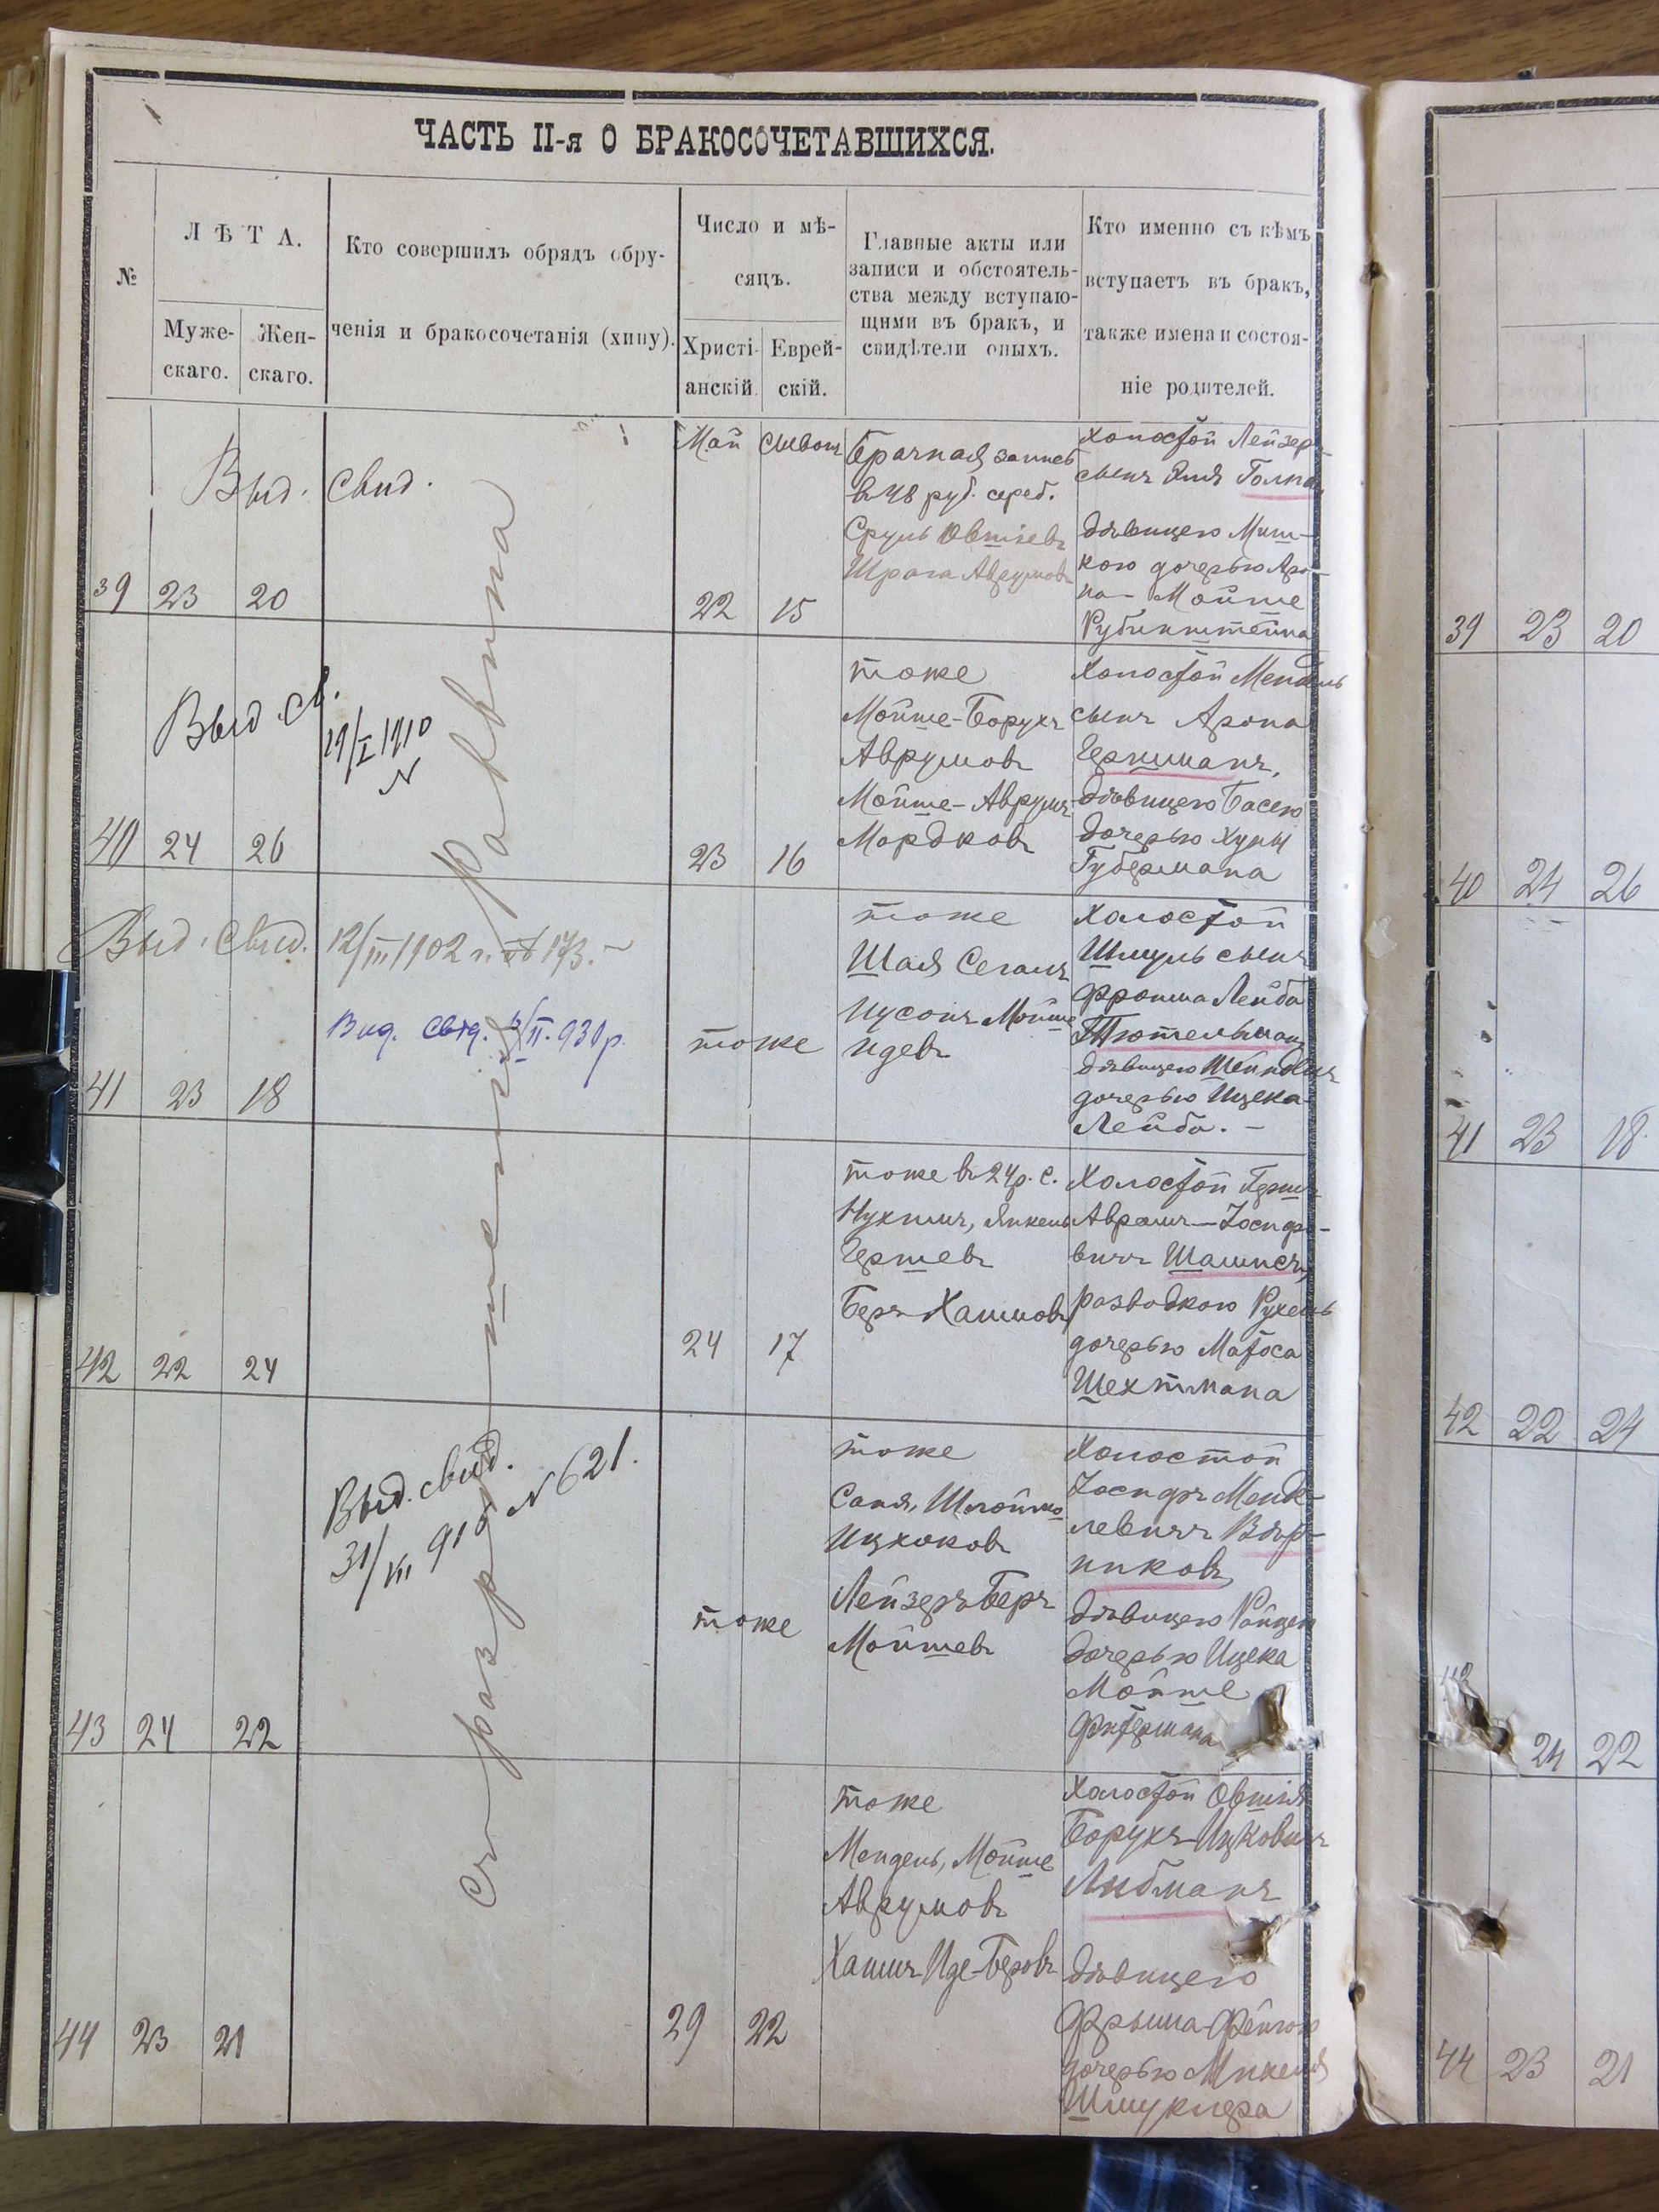 ЧАСТЬ II-я О БРАКОСОЧЕТАВШИХСЯ.
№
ЛѢТА.
Муже-
скаго.
Жен-
скаго.
Кто совершилъ обрядъ обру-
ченія и бракосочетанія (хипу).
Число и мѣ-
сяцъ.
Христі-
анскій
Еврей-
скій.
Главные акты или
записи и обстоятель-
ства между вступаю-
щими въ бракъ, и
свидѣтели оныхъ.
Кто именно съ кѣмъ
вступаетъ въ бракъ,
также имена и состоя-
ніе родителей.
Съ разрешенія Раввина
39 23 20
Выд. Свид.
Май Сивонъ
22 15
Брачная запись
въ 48 руб. сереб.
Сруль Овшіевъ
Шрага Аврумовъ
Холостой Лейзеръ
сынъ Эля
дѣвицею
кою дочерью Аро-
на-Мойше
Рубинштейна
40 24 26
Выд. св.
19/I 1910
N
23 16
тоже
Мойше-Борухъ
Аврумовъ
Мойше-Аврумъ
Мордковъ
Холостой Мендель
сынъ Арона
Гершманъ,
дѣвицею Басею
дочерью Хуны
Губермана
41 23 18
Выд. Свид. 12/III 1902 г. № 173.
Вид. Свід. /II. 930 р.
тоже
тоже
Шая Сегалъ
Нусонъ Мойше
Идевъ
Холостой
Шмуль сынъ
Фроима Лейба
Тютельманъ
дѣвицею
дочерью Ицека
Лейба.
42 22 24
24 17
тоже въ 24 р. с.
Нухимъ, Янкель
Гершевъ
Беръ Хаимовъ
Холостой Гершъ
Аврамъ-Іосифо-
вичъ
разводкою Рухель
дочерью Матоса
Шехтмана
43 24 22
Выд. свид.
31/VII 910 N 621.
тоже
тоже
Саня, Шлойма
Ицхоковъ
Лейзеръ Беръ
Мойшевъ
Холостой
Іосифъ Менде-
левичъ Вѣр-
никовъ
дѣвицею Ройцею
дочерью Ицека
Мойше
Фитермана
44 23 21
29 22
тоже
Мендель, Мойше
Аврумовъ
Хаимъ Иде-Беровъ
Холостой Овшія
Борухъ Ицковичъ
Либманъ
дѣвицею
Фрыма-Фейгою
дочерью Михеля
Шмуклера
39 23 20
40 24 26
41 23 18
42 22 24
24 22
44 23 21